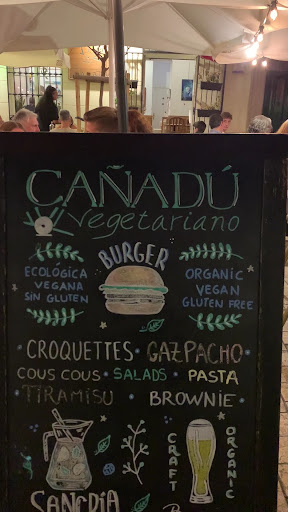 CAÑADÚ
vegetariano
BURGER
ECOLÓGICA
VEGANA
SIN GLUTEN
ORGANIC
VEGAN
GLUTEN FREE
· CROQUETTES · GAZPACHO
COUS COUS · SALADS · PASTA
TIRAMISU · BROWNIE ·
SANGRÍA
CRAFT
ORGANIC